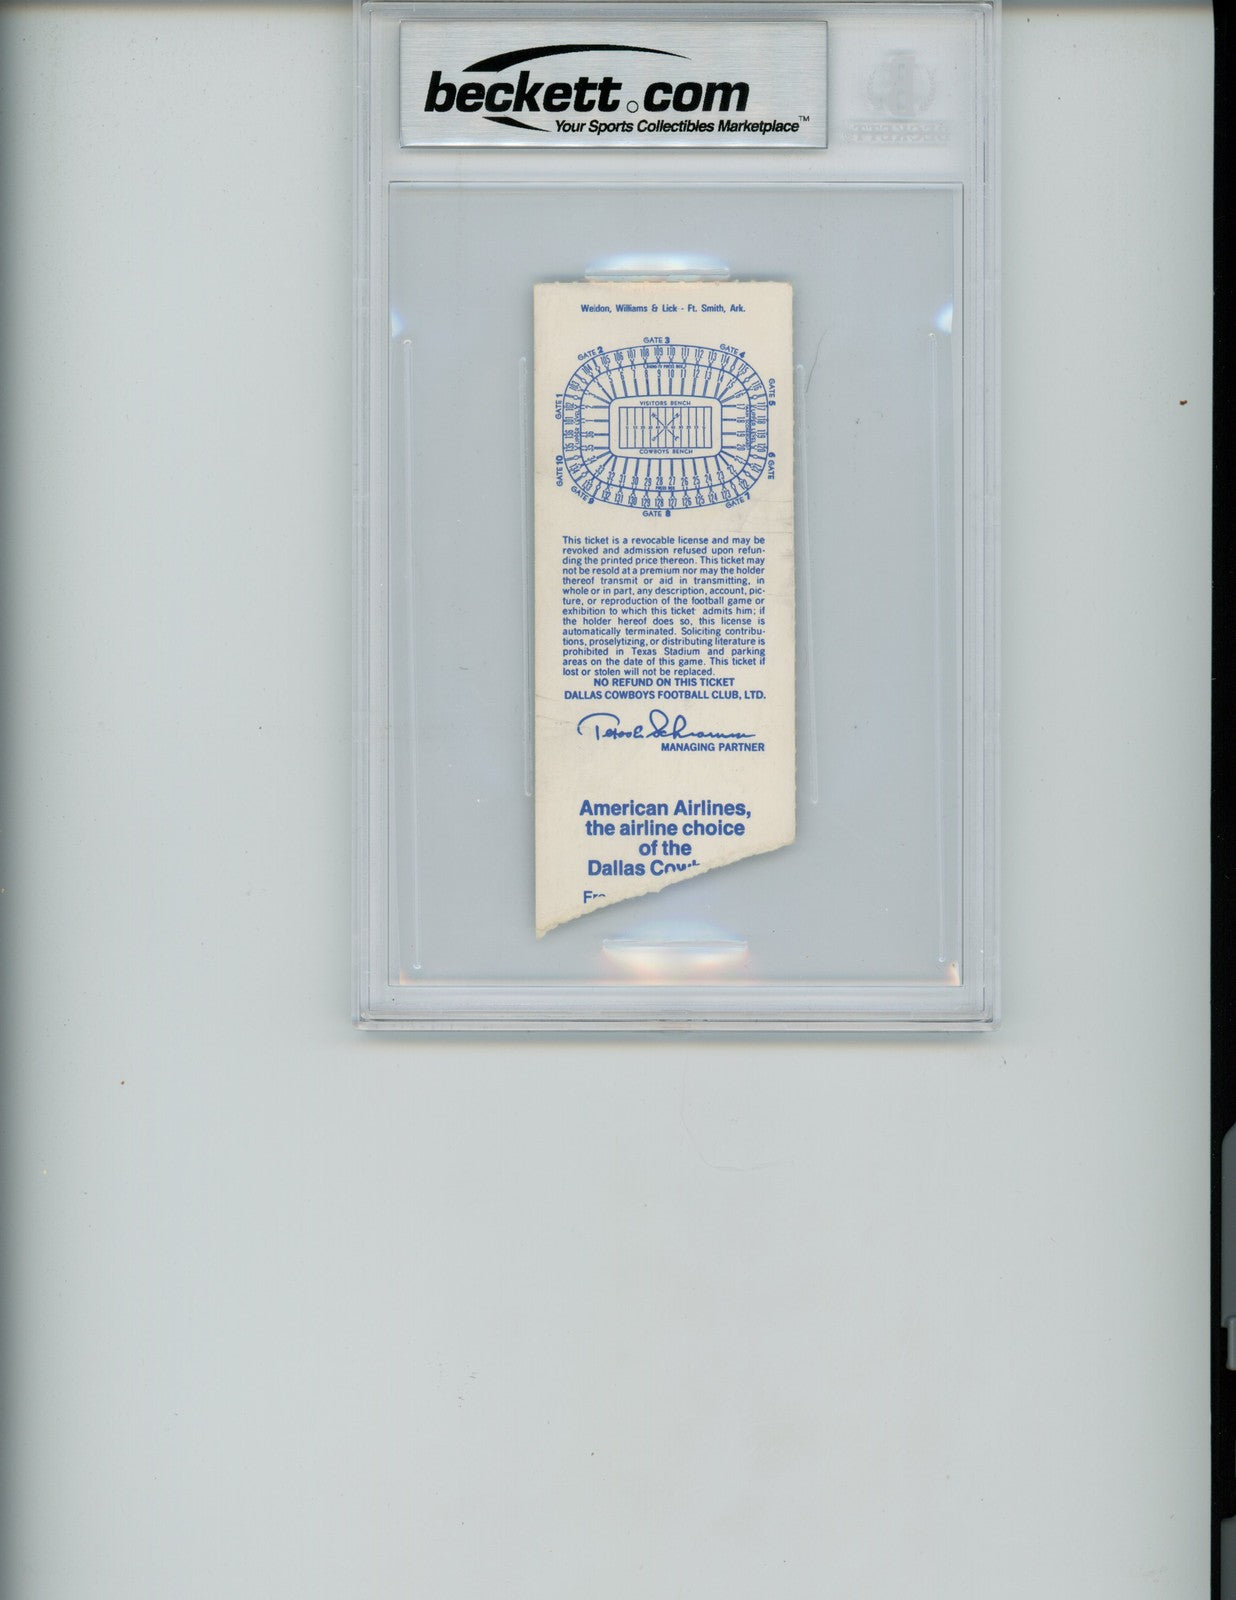 beckett.com
Your Sports Collectibles Marketplace™
Weldon, Williams & Lick - Ft. Smith, Ark.
GATE 1
GATE 2
GATE 3
GATE 4
GATE 5
GATE 6
GATE 7
GATE 8
GATE 9
GATE 10
VISITORS BENCH
COWBOYS BENCH
This ticket is a revocable license and may be
revoked and admission refused upon refun-
ding the printed price thereon. This ticket may
not be resold at a premium nor may the holder
thereof transmit or aid in transmitting, in
whole or in part, any description, account, pic-
ture, or reproduction of the football game or
exhibition to which this ticket admits him; if
the holder hereof does so, this license is
automatically terminated. Soliciting contribu-
tions, proselytizing, or distributing literature is
prohibited in Texas Stadium and parking
areas on the date of this game. This ticket if
lost or stolen will not be replaced.
NO REFUND ON THIS TICKET
DALLAS COWBOYS FOOTBALL CLUB, LTD.
MANAGING PARTNER
American Airlines,
the airline choice
of the
Dallas